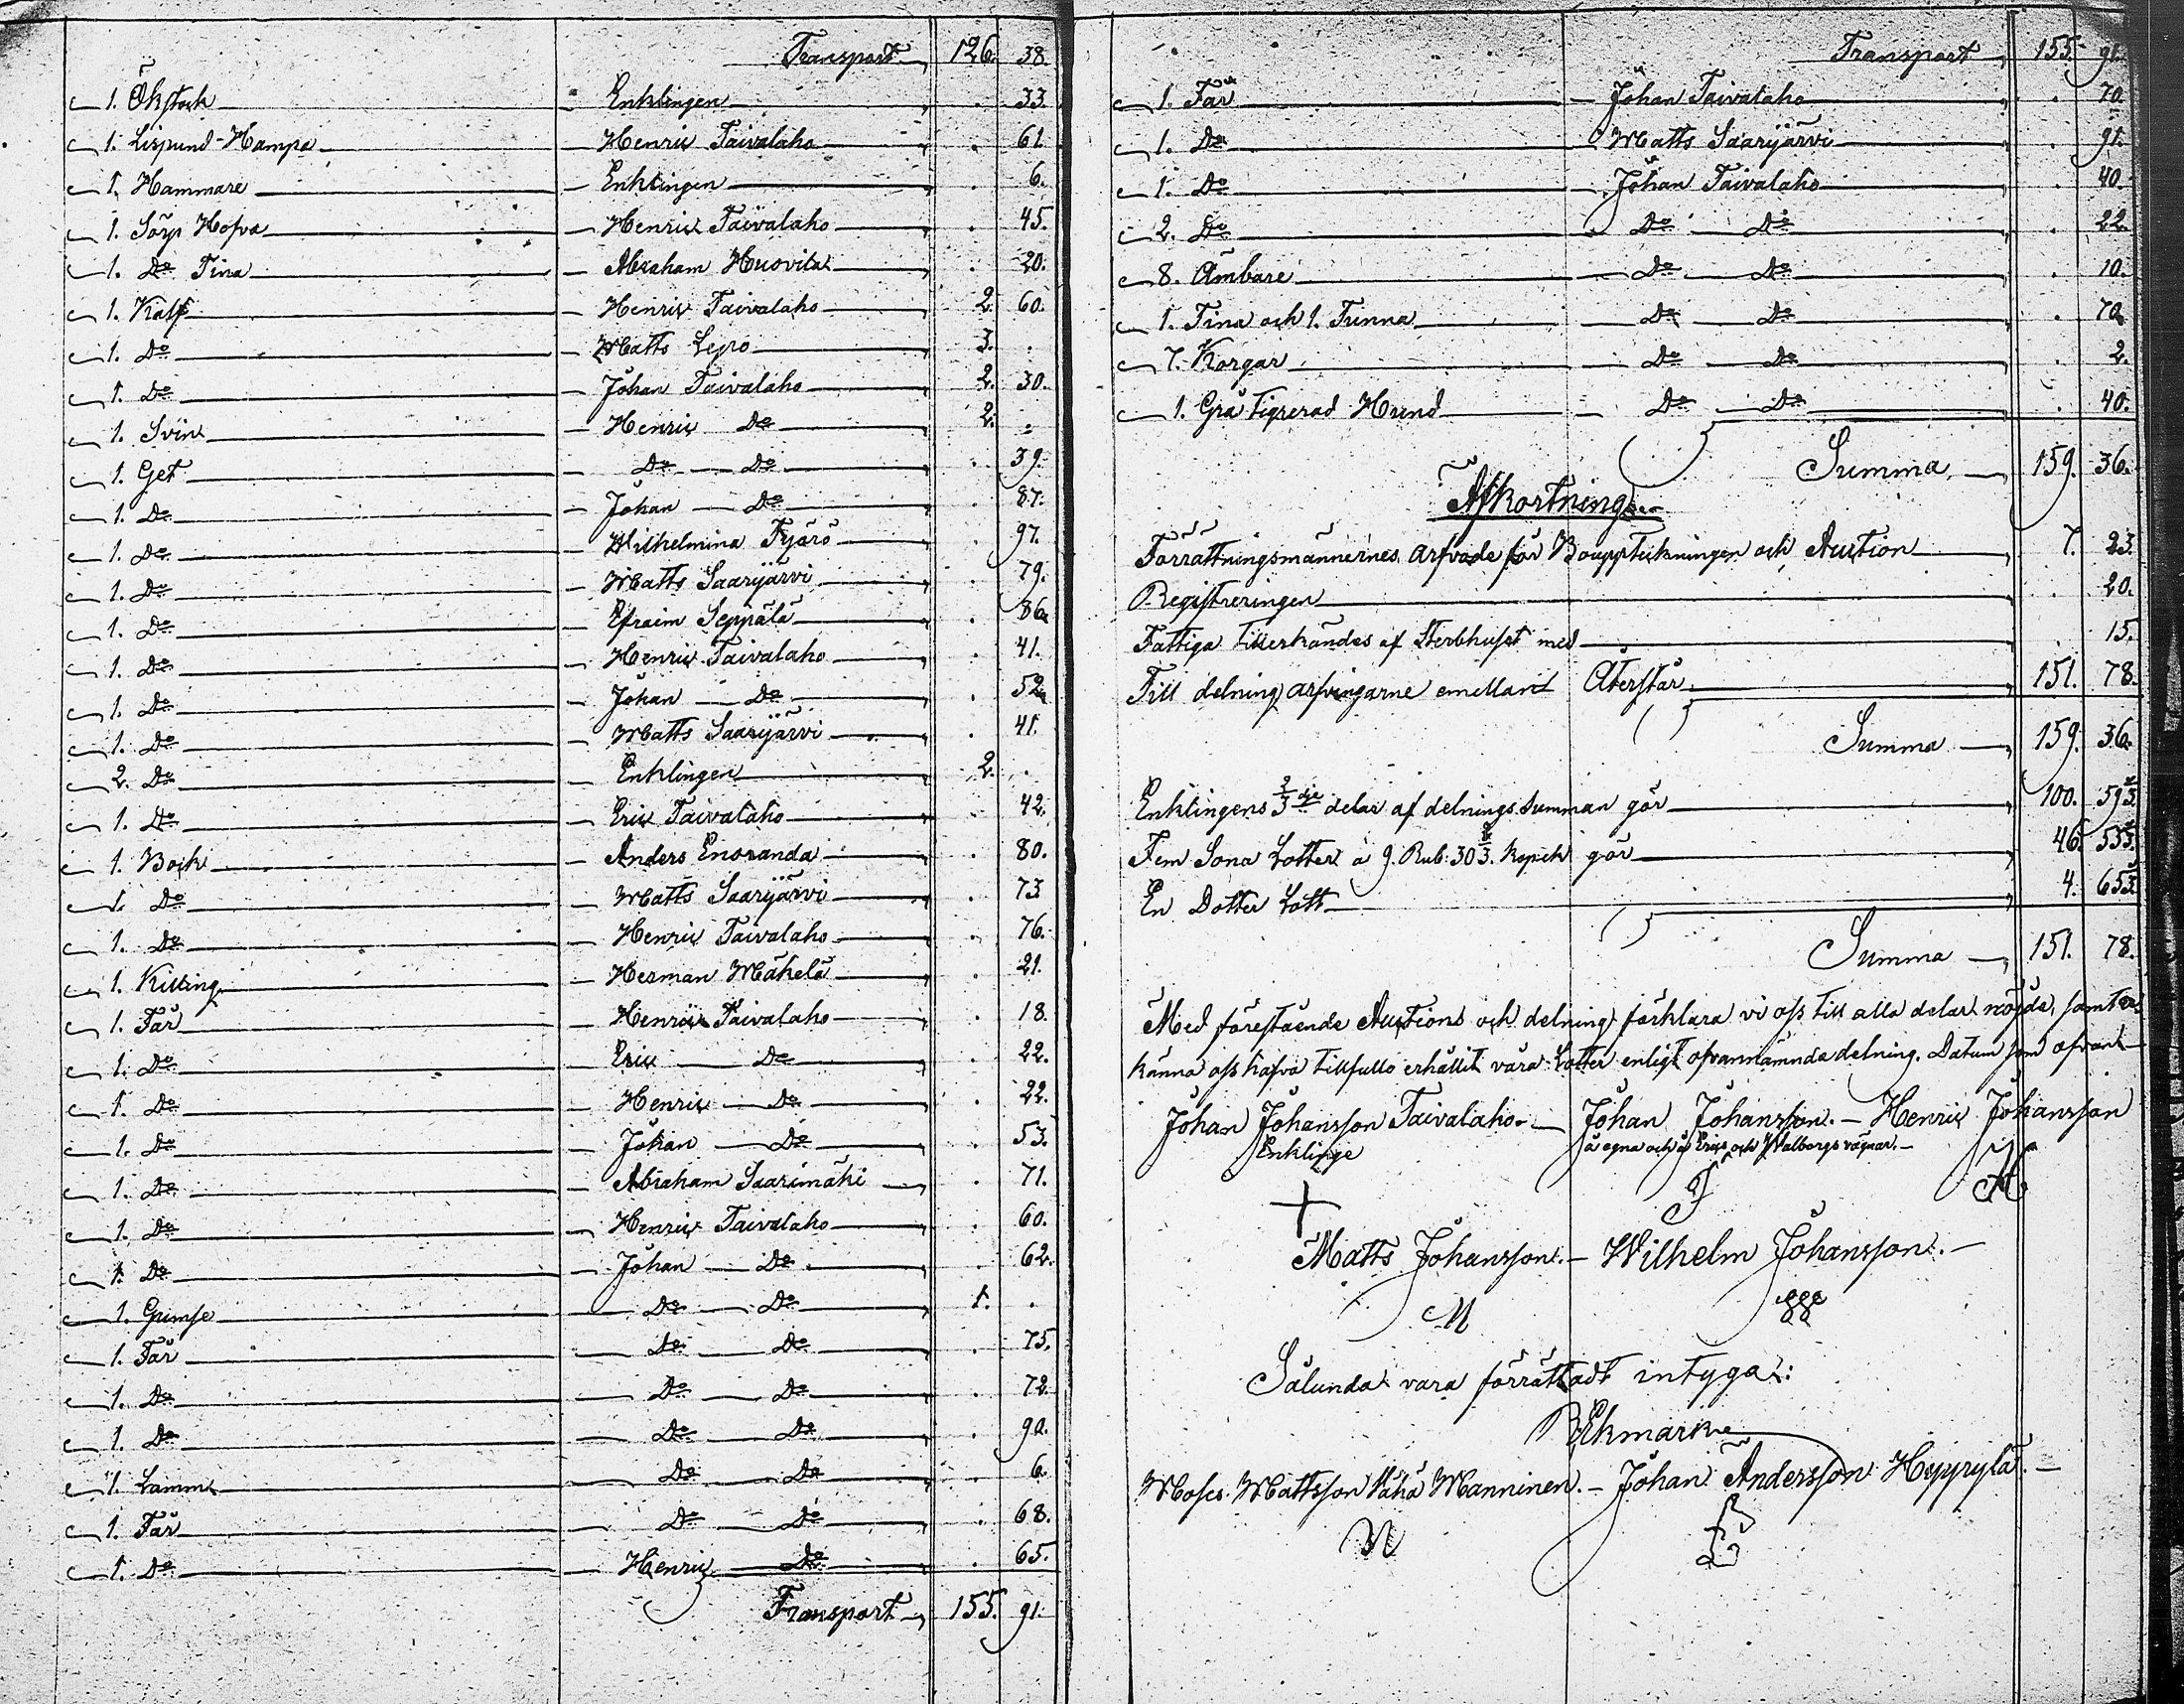 Transport 126. 38.
1. Ökstock Enklingen . 33.
1. Lispund-Hampa Henric Taivalaho . 61.
1. Hammare Enklingen . 6.
1. Sörp Hofva Henric Taivalaho . 45.
1. Do Tina Abraham Huovila . 20.
1. Kalf Henric Taivalaho 2. 60.
1. Do Matts Lepo 3. .
1. Do Johan Taivalaho 2. 30.
1. Svin Henric Do 2. .
1. Get Do Do . 39.
1. Do Johan Do . 87.
1. Do Wilhelmina Fjärö . 97.
1. Do Matts Saarijärvi . 79.
1. Do Efraim Seppälä . 86.
1. Do Henric Taivalaho . 41.
1. Do Johan Do . 52.
1. Do Matts Saarijärvi . 41.
2. Do Enklingen 2. .
1. Do Eric Taivalaho . 42.
1. Bock Anders Enoranda . 80.
1. Do Matts Saarijärvi . 73
1. Do Henric Taivalaho . 76.
1. Killing Herman Mäkelä . 21.
1. Får Henric Taivalaho . 18.
1. Do Eric Do . 22.
1. Do Henric Do . 22.
1. Do Johan Do . 53.
1. Do Abraham Saarimäki . 71.
1. Do Henric Taivalaho . 60.
1. Do Johan Do . 62.
1. Gumse Do Do 1. .
1. Får Do Do . 75.
1. Do Do Do . 72.
1. Do Do Do . 90.
1. Lamm Do Do . 6.
1. Får Do Do . 68.
1. Do Henric Do . 65.
Transport 155. 91.
Transport 155. 91.
1. Får Johan Taivalaho . 70.
1. Do Matts Saarijärvi . 91.
1. Do Johan Taivalaho . 40.
2. Do Do Do . 22.
8. Ämbare Do Do . 10.
1. Tina och 1. Tunna Do Do . 70.
7. Korgar Do Do . 2.
1. Grå tigrerad Hund Do Do . 40.
Summa 159. 36.
Afkortning.
Förrättningsmännernes arfvode för Bouppteckningen och Auction 7. 23.
Registreringen . 20.
Fattiga tillerkändes af Sterbhuset med . 15.
Till delning arfvingarne emellan Återstår 151. 78.
Summa 159. 36.
Enklingens 2/3 dje delar af delnings Summan gör 100. 59 3/5
Fem Sona Lotter a 9. Rub: 30 2/3. kopek gör 46. 53 3/5
En Dotter Lott 4. 65 3/5
Summa 151. 78.
Med förestående Auctions och delning förklara vi oss till alla delar nöjde, samt er
känna oss hafva tillfullo erhållit våra Lotter enligt ofvannämnda delning. Datum som ofvan
Johan Johansson Taivalaho - Johan Johansson. - Henric Johansson
Enklinge å egna och å Erics och Walborgs vägnar. -
J H
Matts Johansson. - Wilhelm Johansson. -
M
Sålunda vara förrättadt intyga:
REkmark
Moses Mattsson Vähä Manninen. - Johan Andersson Hyyrylä. -
N